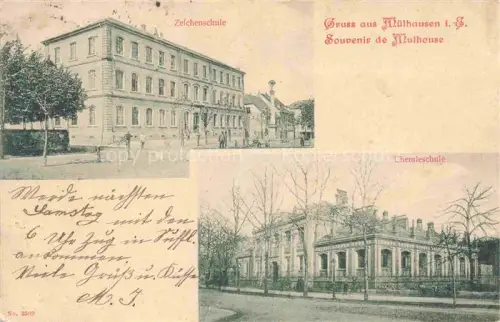 Zeichenschule
Gruss aus Mülhausen i. E.
Souvenir de Mulhouse
Chemieschule
Werde nächsten
Samstag mit den
6 Uhr Zug in
ankommen.
Viele Grüß u. Küsse
M. J.